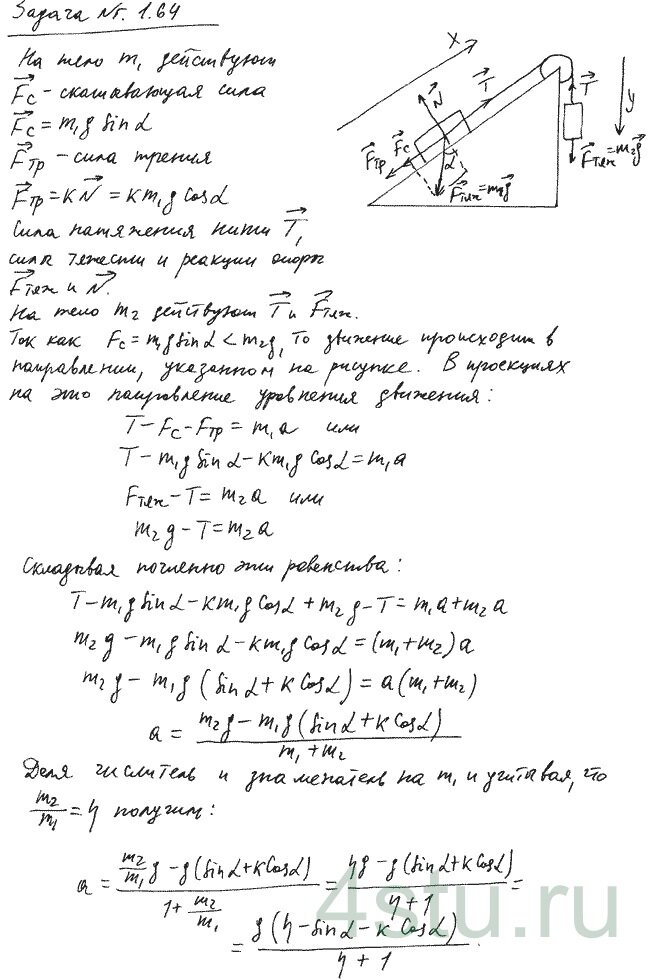 Задача № 1.64
На тело m₁ действуют
F⃗c - скатывающая сила
F⃗c = m₁g sinα
F⃗тр - сила трения
F⃗тр = кN⃗ = кm₁g cosα
Сила натяжения нити T⃗,
сила тяжести и реакции опоры
F⃗тяж и N⃗.
На тело m₂ действуют T⃗ и F⃗тяж.
Так как Fc = m₁g sinα < m₂g, то движение происходит в
направлении, указанном на рисунке. В проекциях
на это направление уравнения движения:
T - Fc - Fтр = m₁a или
T - m₁g sinα - кm₁g cosα = m₁a
Fтяж - T = m₂a или
m₂g - T = m₂a
Складывая почленно эти равенства:
T - m₁g sinα - кm₁g cosα + m₂g - T = m₁a + m₂a
m₂g - m₁g sinα - кm₁g cosα = (m₁ + m₂)a
m₂g - m₁g (sinα + к cosα) = a(m₁ + m₂)
a = (m₂g - m₁g(sinα + к cosα)) / (m₁ + m₂)
Деля числитель и знаменатель на m₁ и учитывая, что
m₂/m₁ = η получим:
a = (m₂/m₁ g - g(sinα + к cosα)) / (1 + m₂/m₁) = (ηg - g(sinα + к cosα)) / (η + 1) =
= g(η - sinα - к cosα) / (η + 1).
x
N⃗
T⃗
F⃗c
F⃗тр
α
F⃗тяж = m₁g⃗
T⃗
y
F⃗тяж = m₂g⃗
4stu.ru